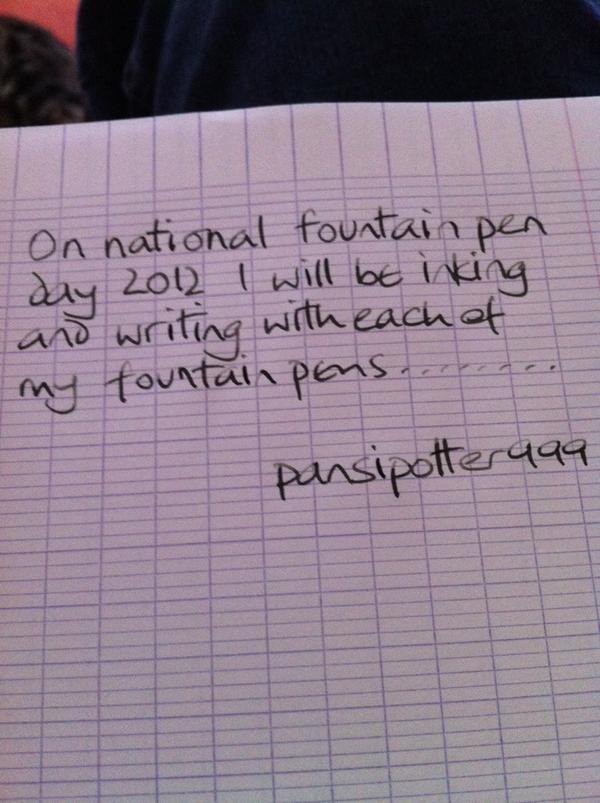 On national fountain pen
day 2012 I will be inking
and writing with each of
my fountain pens.........
pansipotter999